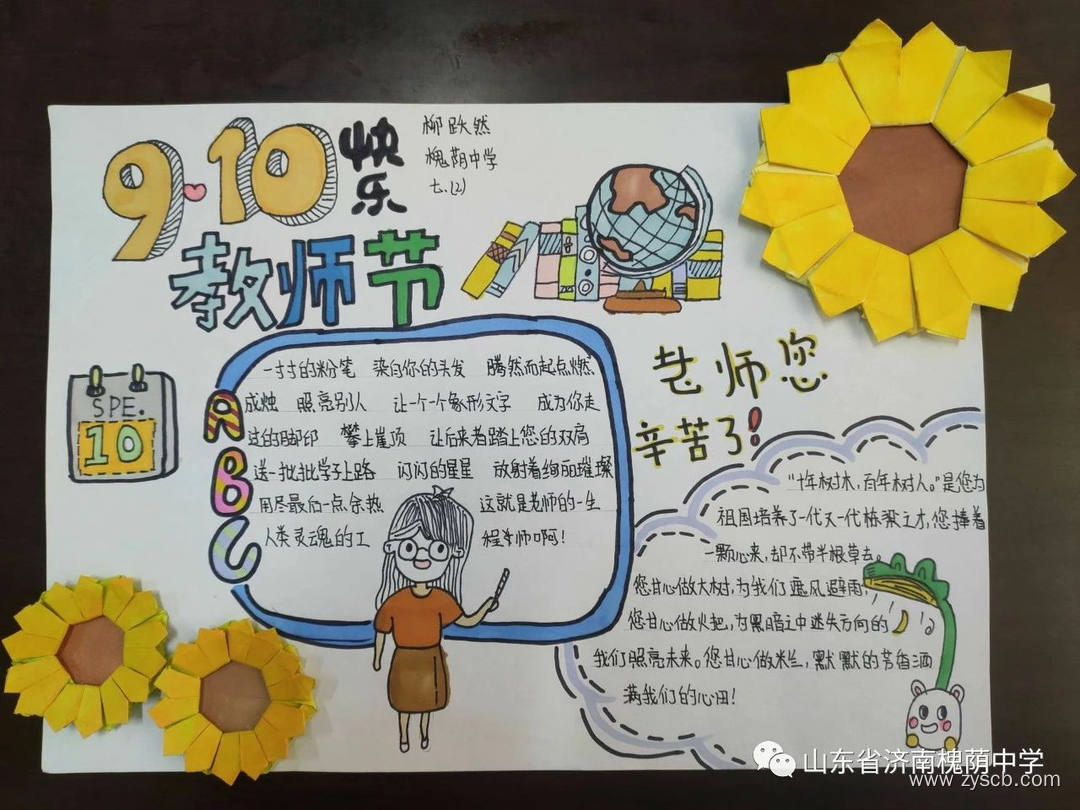 9.10
快乐
柳跃然
槐荫中学
七.(2)
教师节
SPE.
10
A
B
C
一寸寸的粉笔 染白你的头发 腾然而起点燃
成烛 照亮别人 让一个个象形文字 成为你走
过的脚印 攀上崖顶 让后来者踏上您的双肩
送一批批学子上路 闪闪的星星 放射着绚丽璀璨
用尽最后一点余热 这就是老师的一生
人类灵魂的工 程师啊!
老师您
辛苦了!
“十年树木,百年树人。”是您为
祖国培养了一代又一代栋梁之才,您捧着
一颗心来,却不带半根草去。
您甘心做大树,为我们遮风避雨,
您甘心做火把,为黑暗之中迷失方向的
我们照亮未来。您甘心做兰,默默的芳香洒
满我们的心田!
山东省济南槐荫中学
www.zyscb.com